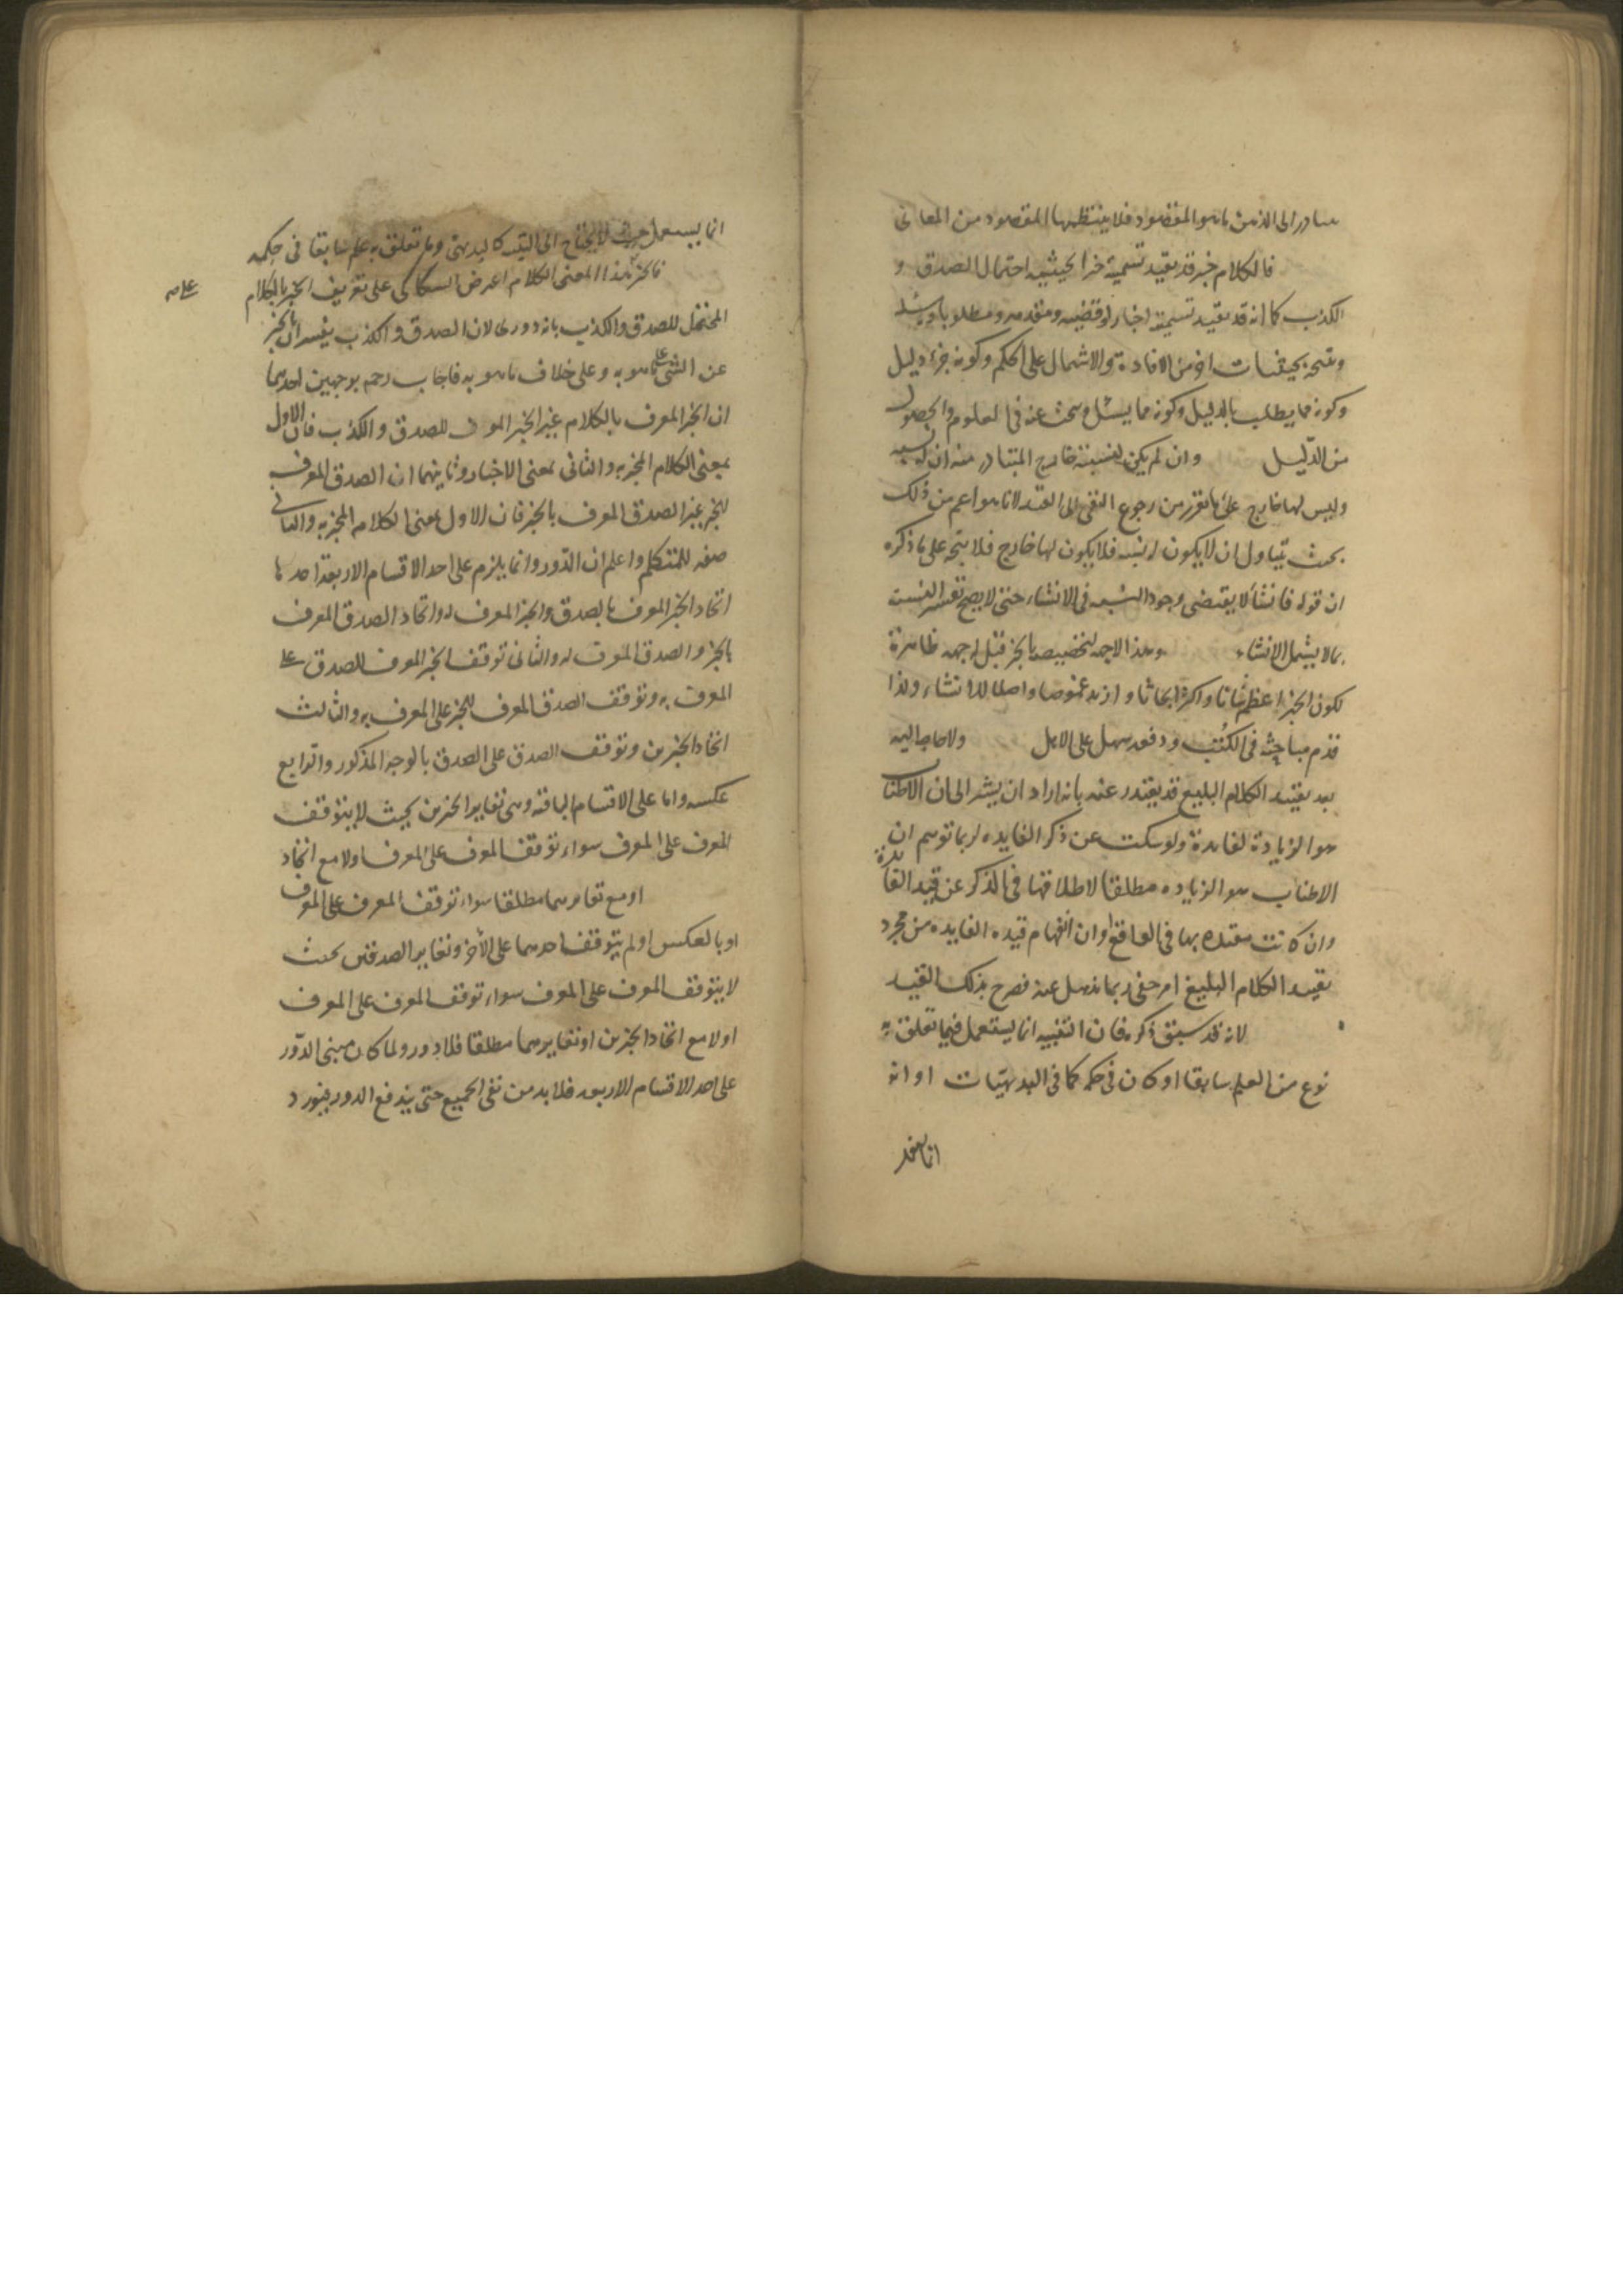 الى الذهن ما هو المقصود فلا ينتظمها المقصود من المعانى
فالكلام خبر قد يقيد تسمية خبرا بحيثية احتمال الصدق و
الكذب كما انه قد يقيد تسمية اخبارا وقضية ومقدمة ومطلوبا
ونتيجة بحيثيات اخر من الافادة والاشتمال على الحكم وكونه جزء دليل
وكونه مما يطلب بالدليل وكونه مما يسئل ويبحث عنه فى العلوم والحصول
من الدّليل وان لم يكن لنسبته خارج المتبادر منه ان له نسبة
وليس لها خارج على ما تقرر من رجوع النفى الى القيد لا ما هو اعم من ذلك
بحيث يتناول ان لا يكون له نسبة فلا يكون لها خارج فلا يتجه على ما ذكره
ان قوله فانشأ لا يقتضى وجود النسبة فى الانشاء حتى لا يصح تفسير النسبة
بما لا يشمل الانشاء وهذا لا جهة لتخصيصه بالخبر قيل له جهة ظاهرة
لكون الخبر اعظم شأنا واكثر ابحاثا وازيد غموضا واصلا للانشاء ولذا
قدم مباحثه فى الكتب ودفعه سهل على الاهل ولا حاجة اليه
بعد تقييد الكلام البليغ قد يعتذر عنه بانه اراد ان يشير الى ان الاطناب
هو الزيادة لفائدة ولو سكت عن ذكر الفايده لربما توهم ان
الاطناب هو الزياده مطلقا لاطلاقها فى الذكر عن قيد الفائدة
وان كانت مقيده بها فى الواقع وان انفهام قيده الفايده من مجرد
تقييد الكلام البليغ امر خفى ربما يذهل عنه فصرح بذلك القيد
لانه قد سبق ذكره فان التنبيه انما يستعمل فيما تعلق به
نوع من العلم سابقا او كان فى حكمه كما فى البديهيّات او انه
انما يستعمل حيث لا يحتاج الى كالبديهى وما تعلق به علم سابقا فى حكمه
فالخبر بهذا المعنى الكلام اعترض السكاكى على تعريف الخبر بالكلام
المحتمل للصدق والكذب بانه دورى لان الصدق والكذب يفسران بالخبر
عن الشئ على ما هو به وعلى خلاف ما هو به فاجاب رحمه بوجهين احدهما
ان الخبر المعرف بالكلام غير الخبر المعرف للصدق والكذب فان الاول
بمعنى الكلام المخبر به والثانى بمعنى الاخبار وثانيهما ان الصدق المعرف
للخبر غير الصدق المعرف بالخبر فان الاول بمعنى الكلام المخبر به والثانى
صفه للمتكلم واعلم ان الدّور وانما يلزم على احد الاقسام الاربعة احدها
اتحاد الخبر المعرف بالصدق والخبر المعرف له واتحاد الصدق المعرف
بالخبر والصدق المعرف له والثانى توقف الخبر المعرف للصدق على
المعرف به وتوقف الصدق المعرف للخبر على المعرف به والثالث
اتحاد الخبرين وتوقف الصدق على الصدق بالوجه المذكور والرّابع
عكسه واما على الاقسام الباقية وهى تغاير الخبرين بحيث لا يتوقف
المعرف على المعرف سواء توقف المعرف على المعرف اولا مع اتحاد
او مع تغايرهما مطلقا سواء توقف المعرف على المعرف
او بالعكس او لم يتوقف احدهما على الأخر وتغاير الصدقين بحيث
لا يتوقف المعرف على المعرف سواء توقف المعرف على المعرف
اولا مع اتحاد الخبرين او تغايرهما مطلقا فلا دور ولما كان مبنى الدّور
على احد الاقسام الاربعه فلا بد من نفى الجميع حتى يندفع الدور